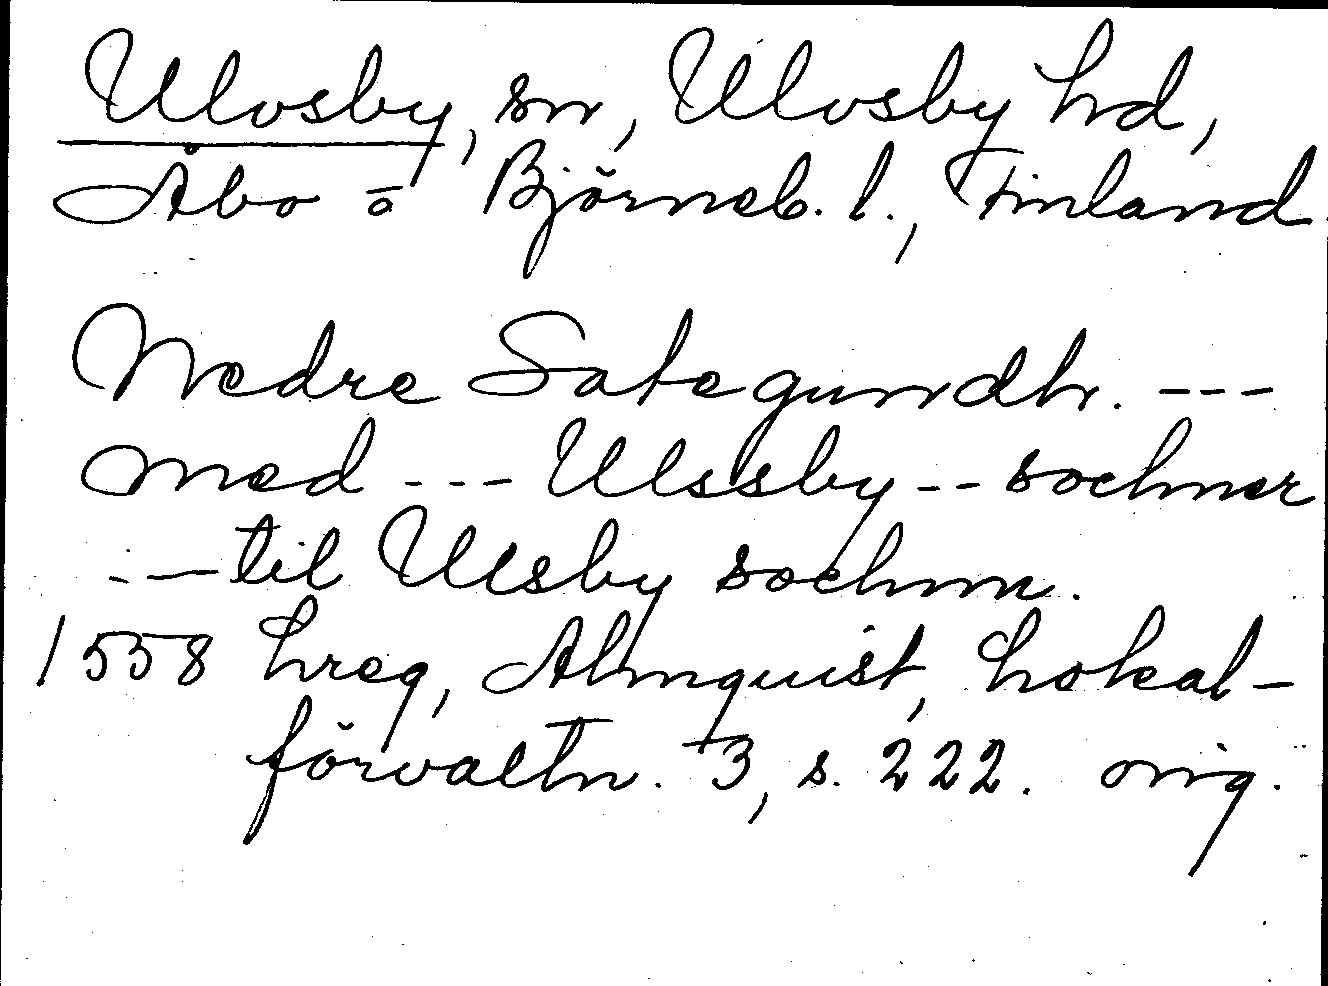 Ulvsby, sn, Ulvsby hd,
Åbo o Björneb. l., Finland.
Nedre Sategundh. ---
med --- Ulssby -- sochner
--- til Ulsby sochnn.
1558 hreg, Almquist, Lokal-
förvaltn. 3, s. 222. orig.